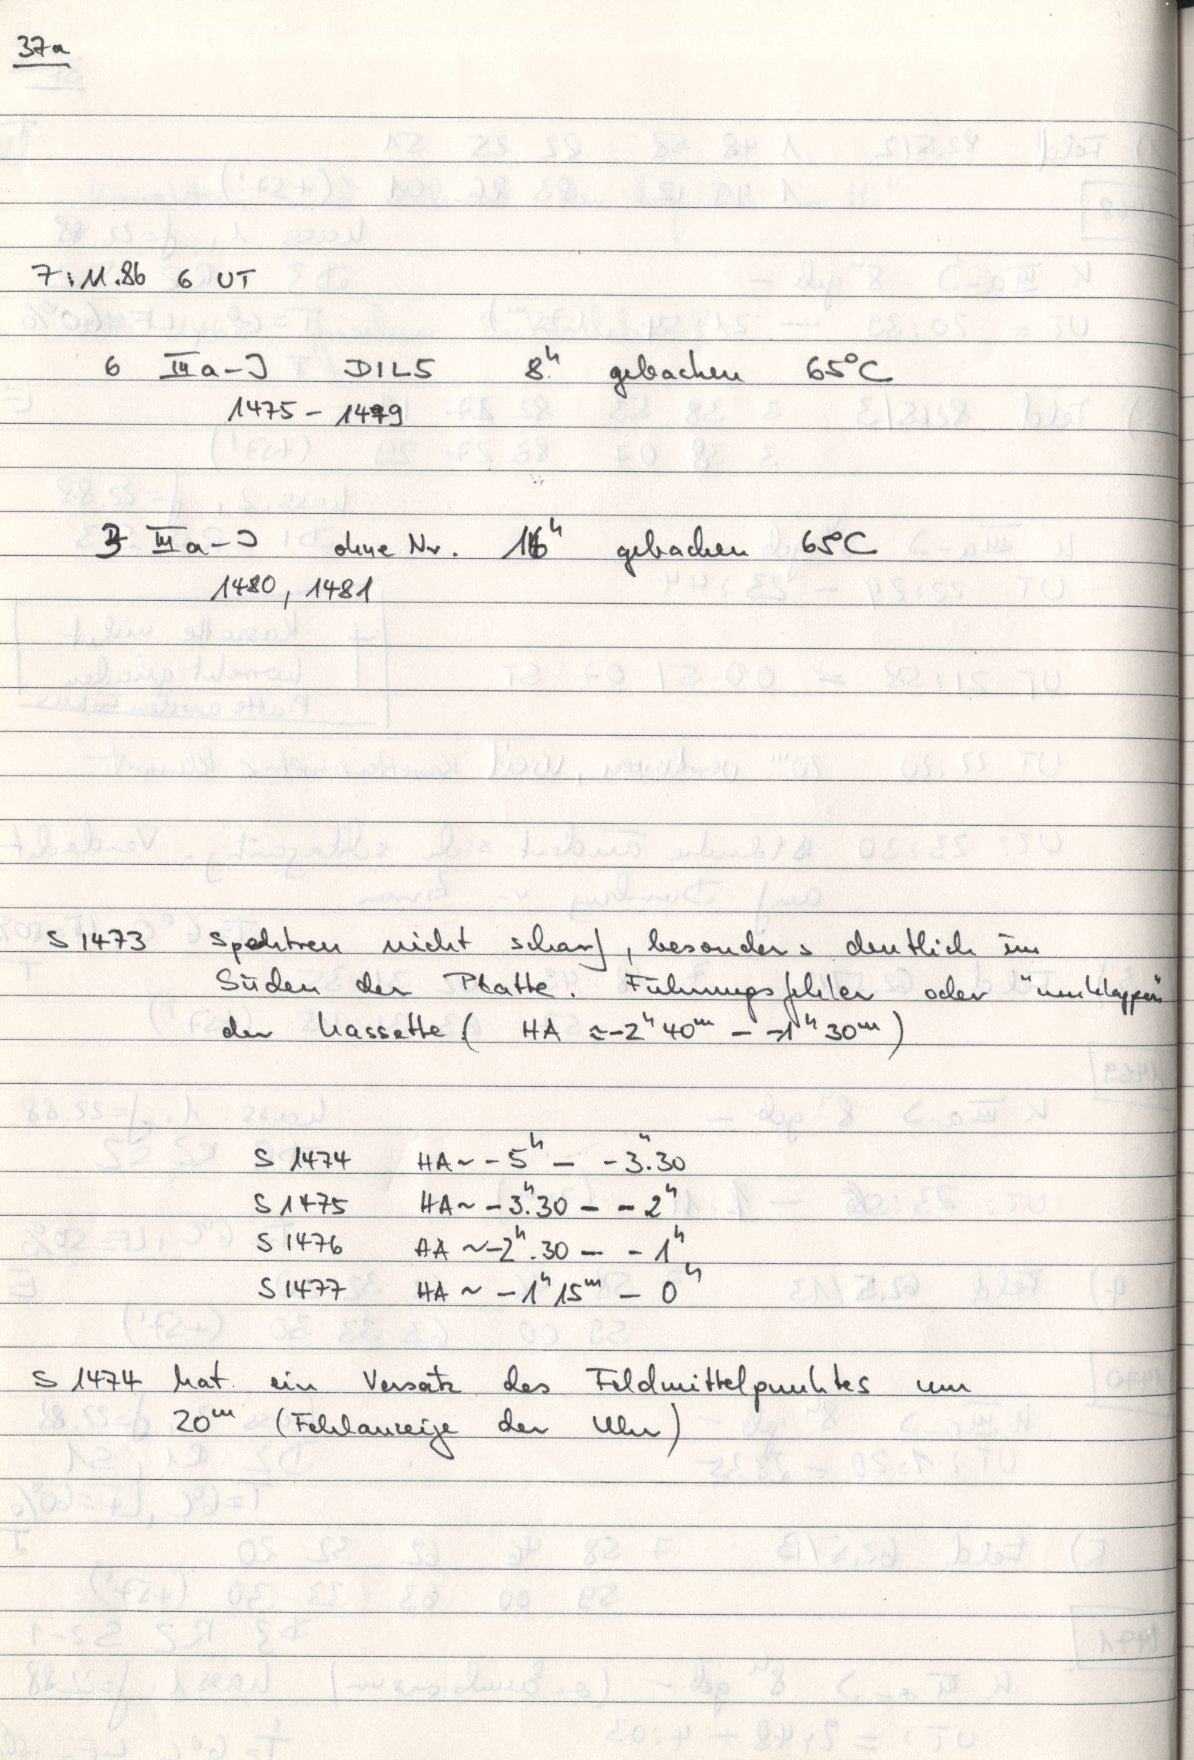 37a
7.11.86 6 UT
6 IIIa-J D1L5 8h gebacken 65°C
1475 - 1479
3 IIIa-J ohne Nr. 16h gebacken 65°C
1480, 1481
S 1473 Spektren nicht scharf, besonders deutlich im
Süden der Platte. Führungsfehler oder "umklappen"
der Kassette ( HA ≈ -2h 40m - -1h 30m )
S 1474 HA ~ -5h - -3h.30
S 1475 HA ~ -3h.30 - -2h
S 1476 HA ~ -2h.30 - -1h
S 1477 HA ~ -1h 15m - 0h
S 1474 hat ein Versatz des Feldmittelpunktes um
20m (Fehlanzeige der Uhr)